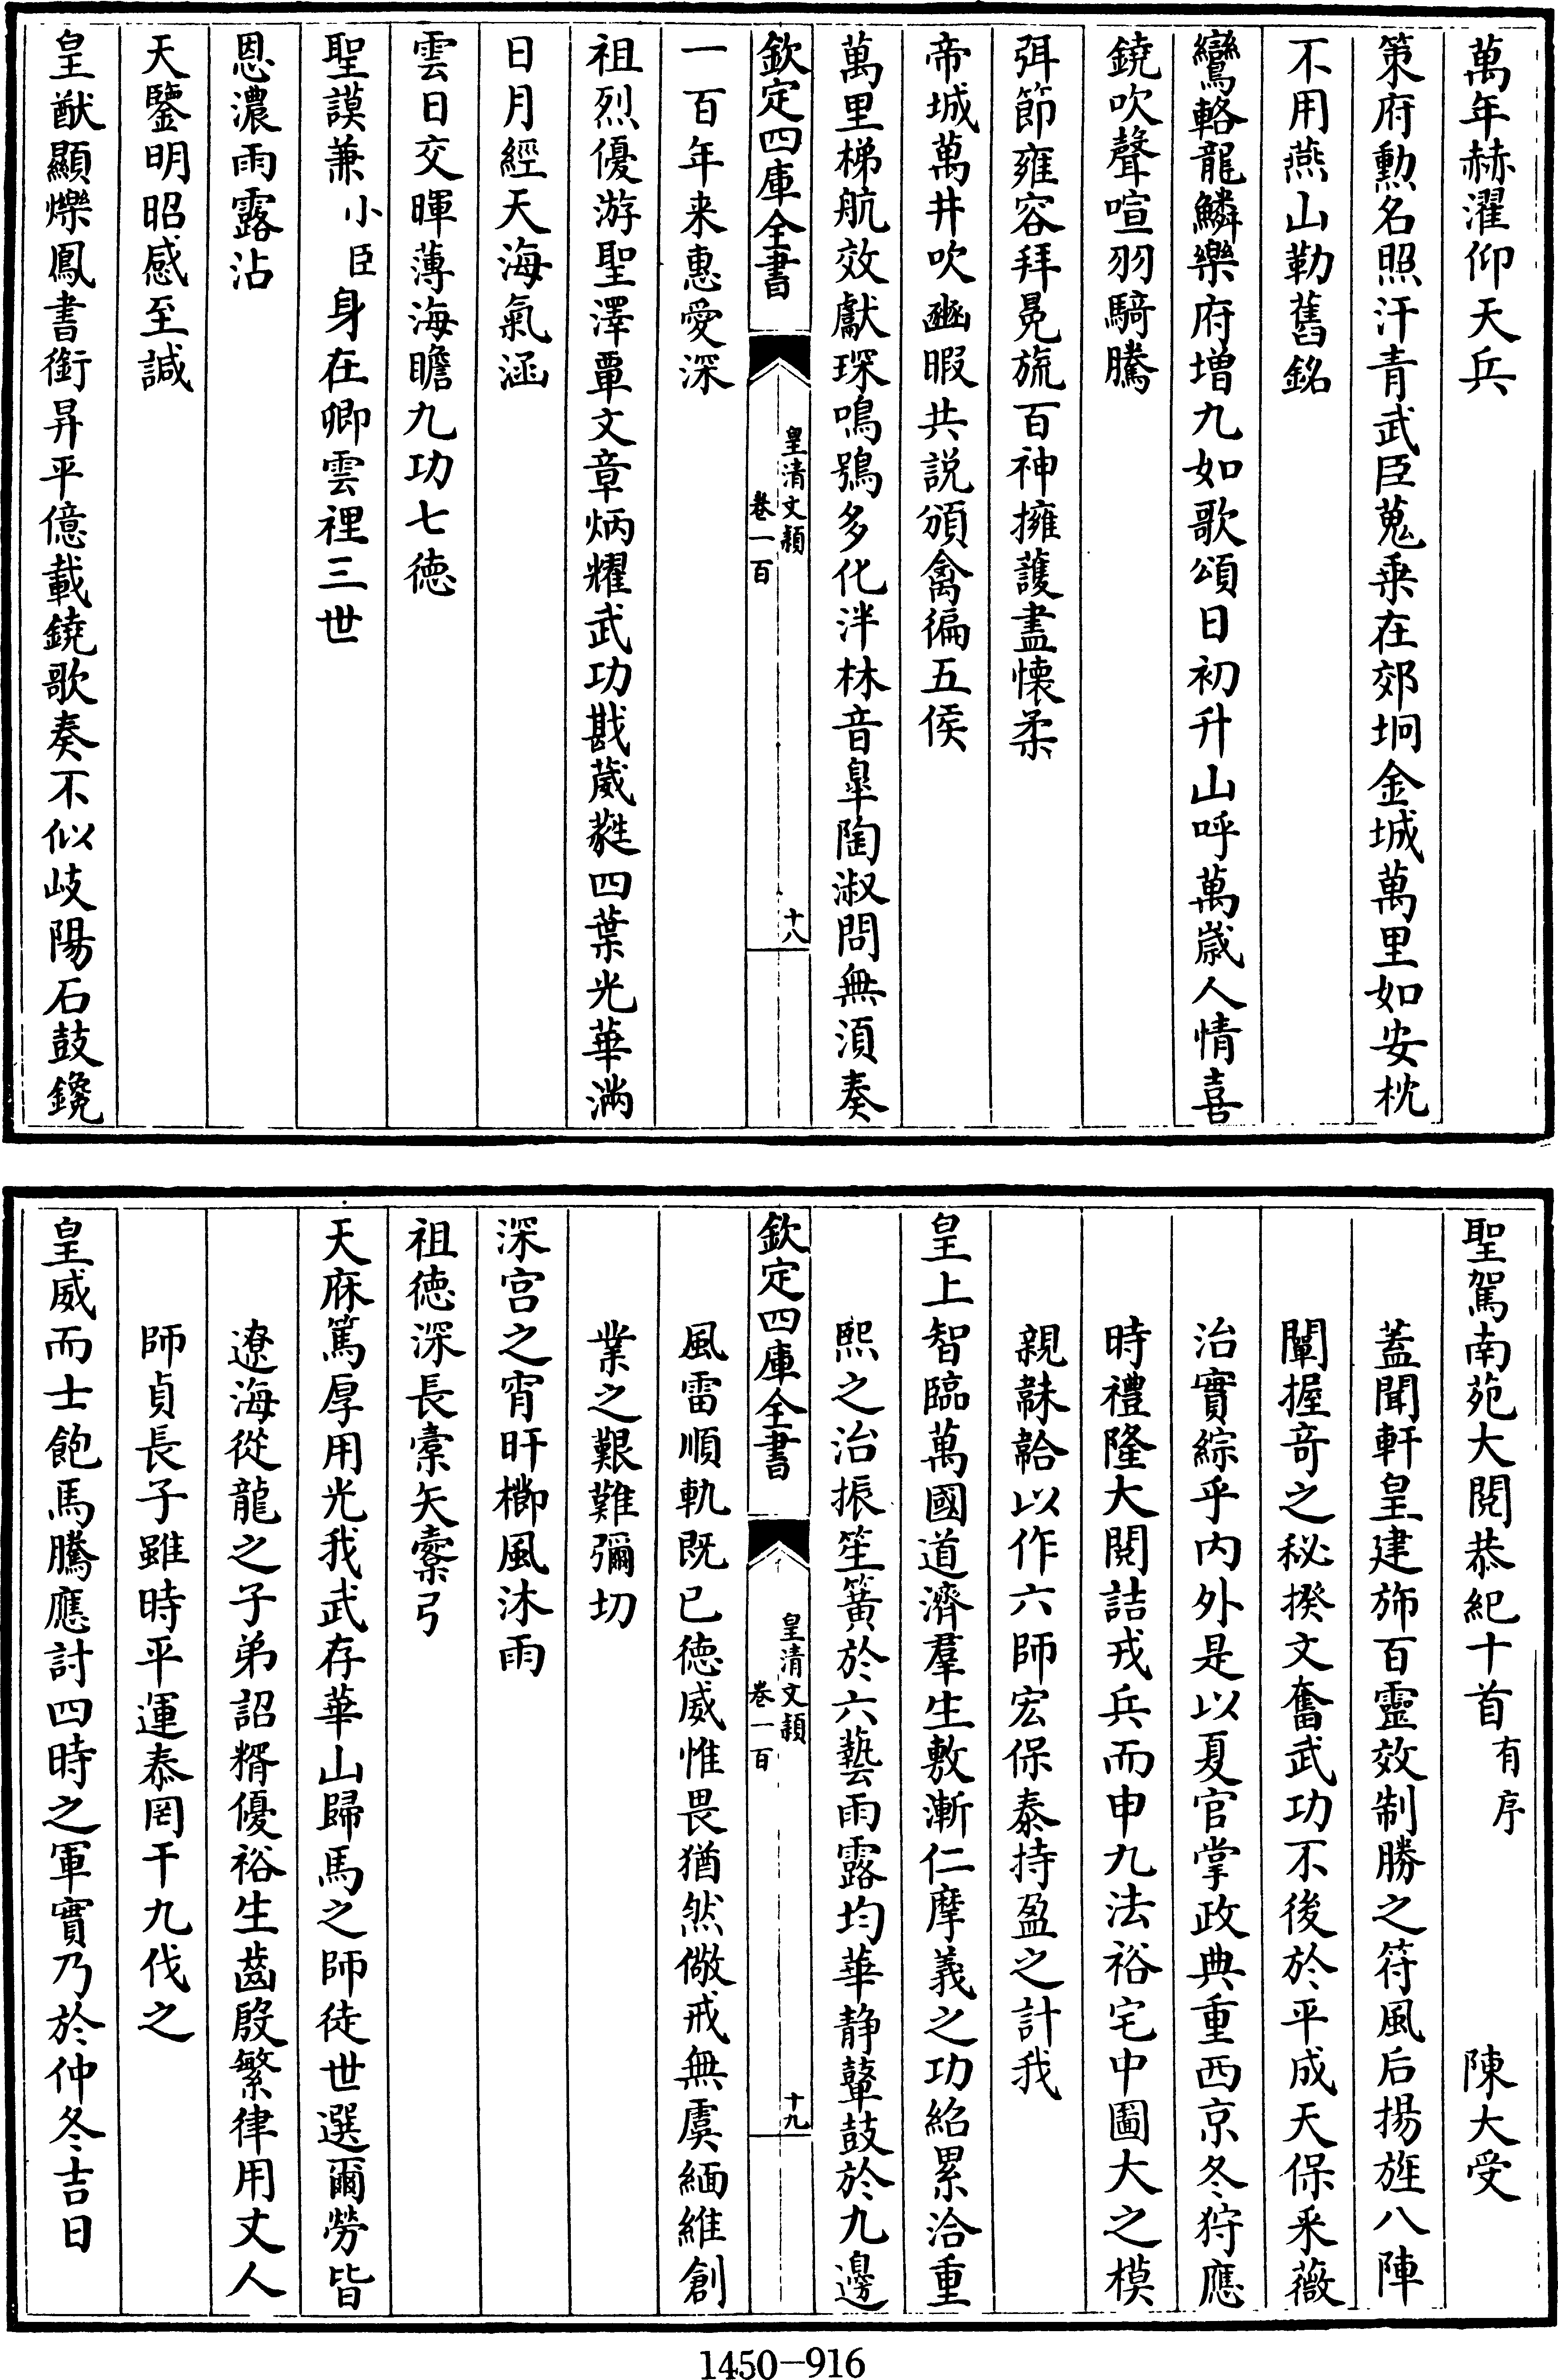 萬年赫濯仰天兵
策府勲名照汗青武臣蒐乗在郊坰金城萬里如安枕
不用燕山勒舊銘
鸞輅龍鱗樂府增九如歌頌日初升山呼萬嵗人情喜
鐃吹聲喧羽騎騰
弭節雍容拜冕旒百神擁䕶盡懐柔
帝城萬井吹豳暇共説頒禽徧五侯
萬里梯航效獻琛鳴鴞多化泮林音臯陶淑問無湏奏
欽定四庫全書
皇清文頴
卷一百
十八
一百年来惠愛深
祖烈優游聖澤覃文章炳耀武功戡葳蕤四葉光華滿
日月經天海氣涵
雲日交暉薄海瞻九功七徳
聖謨兼小臣身在卿雲裡三世
恩濃雨露沾
天鑒明昭感至誠
皇猷顯爍鳳書銜昇平億載鐃歌奏不似岐陽石鼓鑱
聖駕南苑大閱恭紀十首有序 陳大受
蓋聞軒皇建斾百靈效制勝之符風后揚旌八陣
闡握竒之秘揆文奮武功不後於平成天保采薇
治實綜乎内外是以夏官掌政典重西京冬狩應
時禮隆大閱詰戎兵而申九法裕宅中圖大之模
親韎韐以作六師宏保泰持盈之計我
皇上智臨萬國道濟羣生敷漸仁摩義之功紹累洽重
熙之治振笙簧於六藝雨露均華静鼙鼓於九邊
欽定四庫全書
皇清文頴
卷一百
十九
風雷順軌既已徳威惟畏猶然儆戒無虞緬維創
業之艱難彌切
深宫之宵旰櫛風沐雨
祖徳深長櫜矢櫜弓
天庥篤厚用光我武存華山歸馬之師徒世選爾勞皆
遼海從龍之子弟詔糈優裕生齒殷繁律用丈人
師貞長子雖時平運泰罔干九伐之
皇威而士飽馬騰應討四時之軍實乃於仲冬吉日
1450—916